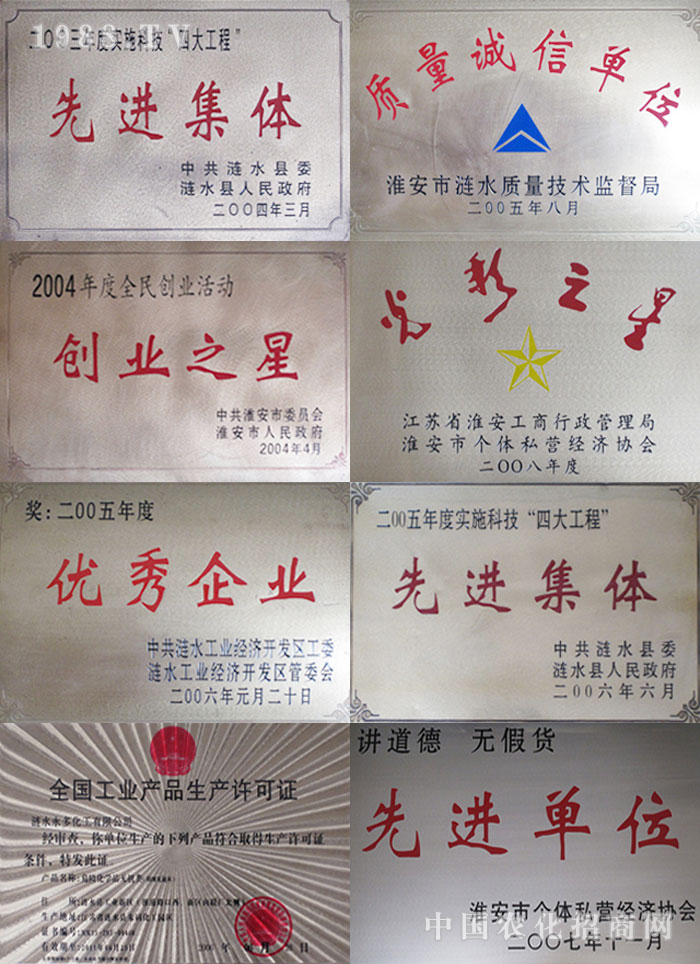 1988.TV
二〇〇三年度实施科技“四大工程”
先进集体
中共涟水县委
涟水县人民政府
二〇〇四年三月
质量诚信单位
淮安市涟水质量技术监督局
二〇〇五年八月
2004年度全民创业活动
创业之星
中共淮安市委员会
淮安市人民政府
2004年4月
光彩之星
江苏省淮安工商行政管理局
淮安市个体私营经济协会
二〇〇八年度
奖:二〇〇五年度
优秀企业
中共涟水工业经济开发区工委
涟水工业经济开发区管委会
二〇〇六年元月二十日
二〇〇五年度实施科技“四大工程”
先进集体
中共涟水县委
涟水县人民政府
二〇〇六年六月
全国工业产品生产许可证
涟水永多化工有限公司
经审查,你单位生产的下列产品符合取得生产许可证
条件,特发此证。
产品名称:危险化学品无机类
生产地址:
证书编号:
有效期至:
讲道德 无假货
先进单位
淮安市个体私营经济协会
二〇〇七年十一月
中国农化招商网